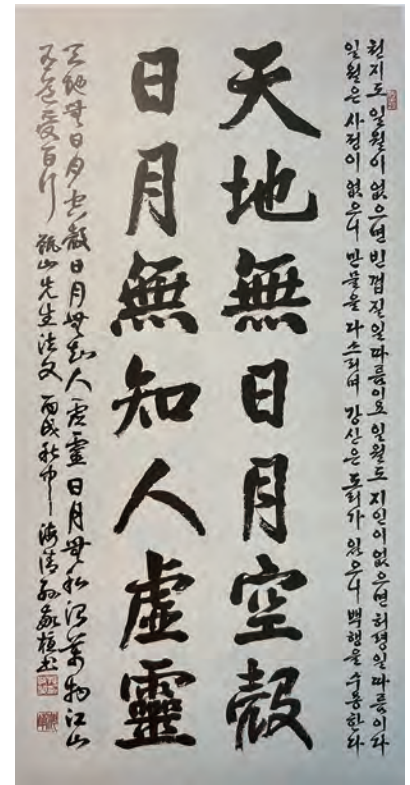 천지도 일월이 없으면 빈 껍질일 따름이요 일월도 지인이 없으면 허령일 따름이다
일월은 사정이 없으니 만물을 다스리며 강산은 도리가 있으니 백행을 수용한다
天地無日月空殼
日月無知人虛靈
天地無日月空殼日月無知人虛靈日月無私治萬物江山
有道受百行 甑山先生法文 丙戌秋中 海清